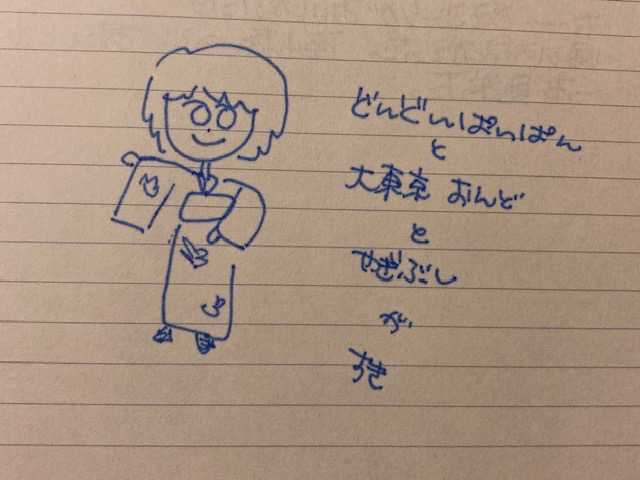 どんどんぱんぱん
と
大東京 おんど
と
やぎぶし
が
すき